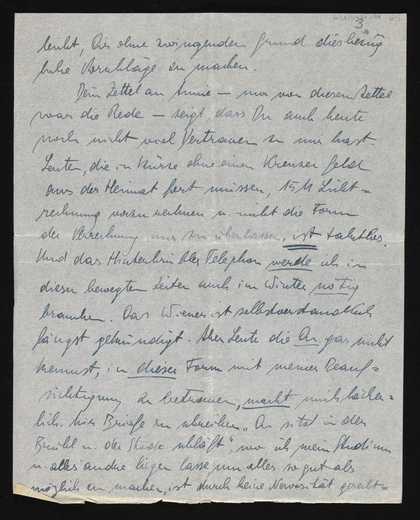 3
leicht, Dir ohne zwingenden Grund diesbezüg
liche Vorschläge zu machen.
Dein Zettel an Annie – nur von diesem Zettel
war die Rede – zeigt, dass Du auch heute
noch nicht viel Vertrauen zu mir hast.
Leuten, die in Kürze ohne einen Kreuzer Geld
aus der Heimat fort müssen, 15 M Licht=
rechnung vorzunehmen u. nicht die Form
der Verrechnung mir zu überlassen, ist taktlos.
Und das Hinterbrühler Telephon werde ich in
diesen bewegten Zeiten auch im Winter nötig
brauchen. Das Wiener ist selbstverständlich
längst gekündigt. Aber Leute die Du gar nicht
kennst, in dieser Form mit meiner Beauf-
sichtigung zu betrauen, macht mich lächer-
lich. Mir Briefe zu schreiben „Du sitzt in der
Brühl u. die Stadt schläft", wo ich mein Studium
u. alles andre liegen lasse um alles so gut als
möglich zu machen, ist durch keine Nervosität gerecht=